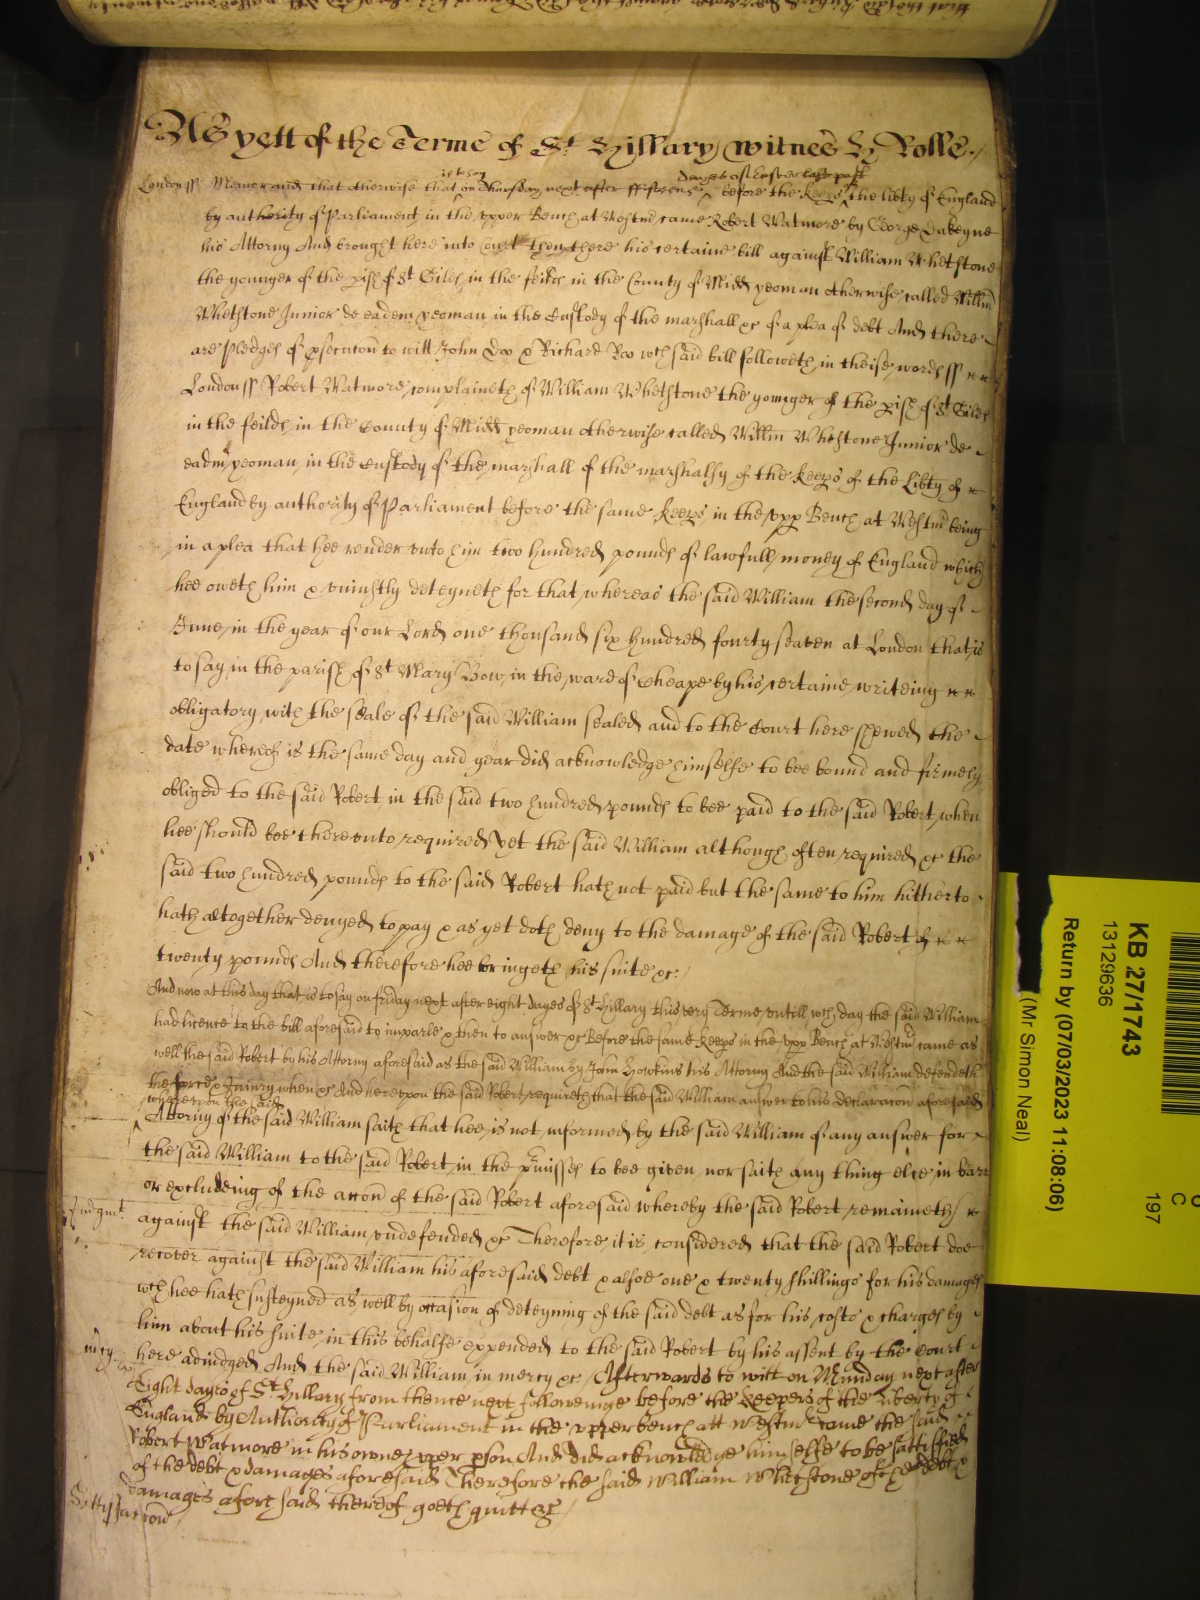 As yett of the Terme of St Hillary witnes H Rolle
London ss Memorand that otherwise that is to say on Thursday next after fifteene dayes of Easter last past before the keeps of the libty of England
by authority of Parliament in the upper Bench at Westmr came Robert Watmore by George Dakeyne
his Attorny And brought here into Court then there his certaine bill against William Whetstone
the younger of the pish of St Giles in the feilds in the County of Midd yeoman otherwise called Willm
Whetstone Junior de eadem yeoman in the Custody of the marshall &c of a plea of debt And there
are pledges of psecucon to witt John Doo & Richard Roo wch said bill followeth in theise words ss
London ss Robert Watmore complaineth of William Whetstone the younger of the pish of St Giles
in the feilds in the County of Midd yeoman otherwise called Willm Whetstone Junior de
eadm yeoman in the Custody of the marshall of the marshalsy of the keeps of the Libty of
England by authority of Parliament before the same keeps in the upp Bench at Westmr being
in a plea that hee render unto him two hundred pounds of lawfull money of England which
hee oweth him & uniustly deteyneth for that whereas the said William the second day of
June in the year of our Lord one thousand six hundred fourty seaven at London that is
to say in the parish of St Mary Bow in the ward of Cheape by his certaine writeing
obligatory with the seale of the said William sealed and to the Court here shewed the
date whereof is the same day and year did acknowledge himselfe to bee bound and firmely
obliged to the said Robert in the said two hundred pounds to bee paid to the said Robert when
hee should bee thereunto required Yet the said William although often required &c the
said two hundred pounds to the said Robert hath not paid but the same to him hitherto
hath altogether denyed to pay & as yet doth deny to the damage of the said Robert of
twenty pounds And therefore hee bringeth his suite &c
And now at this day that is to say on friday next after eight dayes of St Hillary this very Terme untill wch day the said William
had licence to the bill aforesaid to imparle & then to answer &c Before the same keeps in the upp Bench at Westmr came as
well the said Robert by his Attorny aforesaid as the said William by John Howkins his Attorny And the said William defendeth
the force & Iniury when &c And hereupon the said Robert requireth that the said William answer to his declaracon aforesaid
whereupon the said
Attorny of the said William saith that hee is not informed by the said William of any answer for
the said William to the said Robert in the pmisses to bee given nor saith any thing else in barr
or excludeing of the accon of the said Robert aforesaid whereby the said Robert remaineth
Judgmt
against the said William undefended &c Therefore it is considered that the said Robert doe
recover against the said William his aforesaid debt & alsoe one & twenty shillings for his damages
wch hee hath susteyned as well by occasion of deteyning of the said debt as for his costs & charges by
him about his suite in this behalfe expended to the said Robert by his assent by the Court
mcy
here adiudged And the said William in mercy &c Afterwards to witt on Munday next after
Eight dayes of St Hillary from thence next followeinge before the Keepers of the Liberty of
England by Authority of Parliament in the upper bench att Westmr came the said
Robert Watmore in his owne pper pson And did acknowledge himselfe to be sattisfied
of the debt & damages aforesaid Therefore the said William Whetstone of the debt &
damages aforesaid thereof goeth quitt &c
KB 27/1743
13129636
Return by (07/03/2023 11:08:06)
(Mr Simon Neal)
C
197